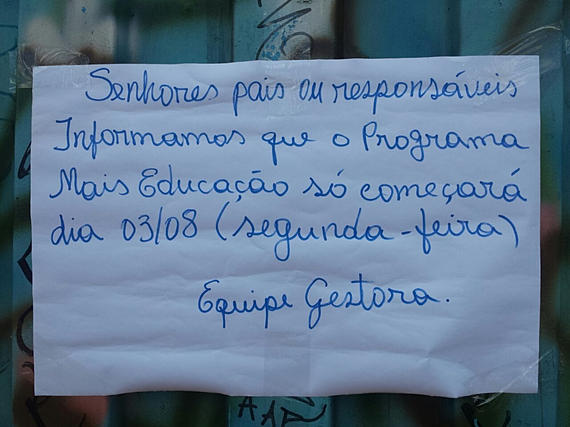 Senhores pais ou responsáveis
Informamos que o Programa
Mais Educação só começará
dia 03/08 (segunda-feira)
Equipe Gestora.